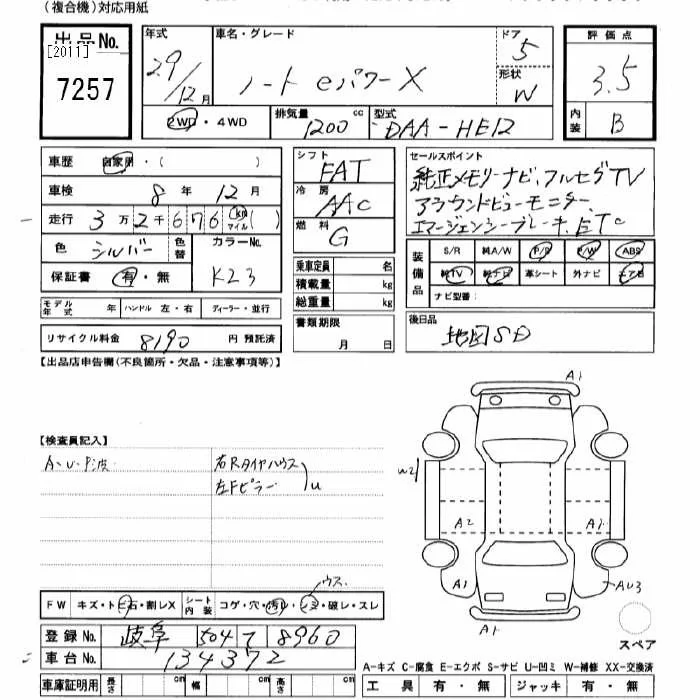 (複合機)対応用紙
出品No.
[2011]
7257
年式
29/12月
車名・グレード
ノート eパワーX
ドア
5
形状
W
評価点
3.5
内装
B
2WD・4WD
排気量
1200cc
型式
DAA-HE12
車歴
自家用・( )
車検
8年12月
走行
3万2千676km マイル( )
色
シルバー
色替
カラーNo.
K23
保証書
有・無
モデル年式
年
ハンドル 左・右
ディーラー・並行
リサイクル料金
8190
円 預託済
シフト
FAT
冷房
AAC
燃料
G
乗車定員
名
積載量
kg
総重量
kg
書類期限
月 日
セールスポイント
純正メモリーナビ、フルセグTV
アラウンドビューモニター、
エマージェンシーブレーキ、ETC
装備品
S/R
純A/W
P/S
P/W
ABS
純TV
純ナビ
革シート
外ナビ
エアB
ナビ型番:
後日品
地図SD
【出品店申告欄(不良箇所・欠品・注意事項等)】
【検査員記入】
A・U・P波
右Rタイヤハウス
左Fピラー
U
A1
W2
A2
A1
A1
AU3
A1
スペア
FW
キズ・トビ石・割レX
シート内装
コゲ・穴・汚レ・シミ・破レ・スレ
ウス
登録No.
岐阜 504 7 8960
車台No.
134372
A-キズ C-腐食 E-エクボ S-サビ U-凹ミ W-補修 XX-交換済
車庫証明用
長さ
cm
幅
cm
高さ
cm
工具
有・無
ジャッキ
有・無